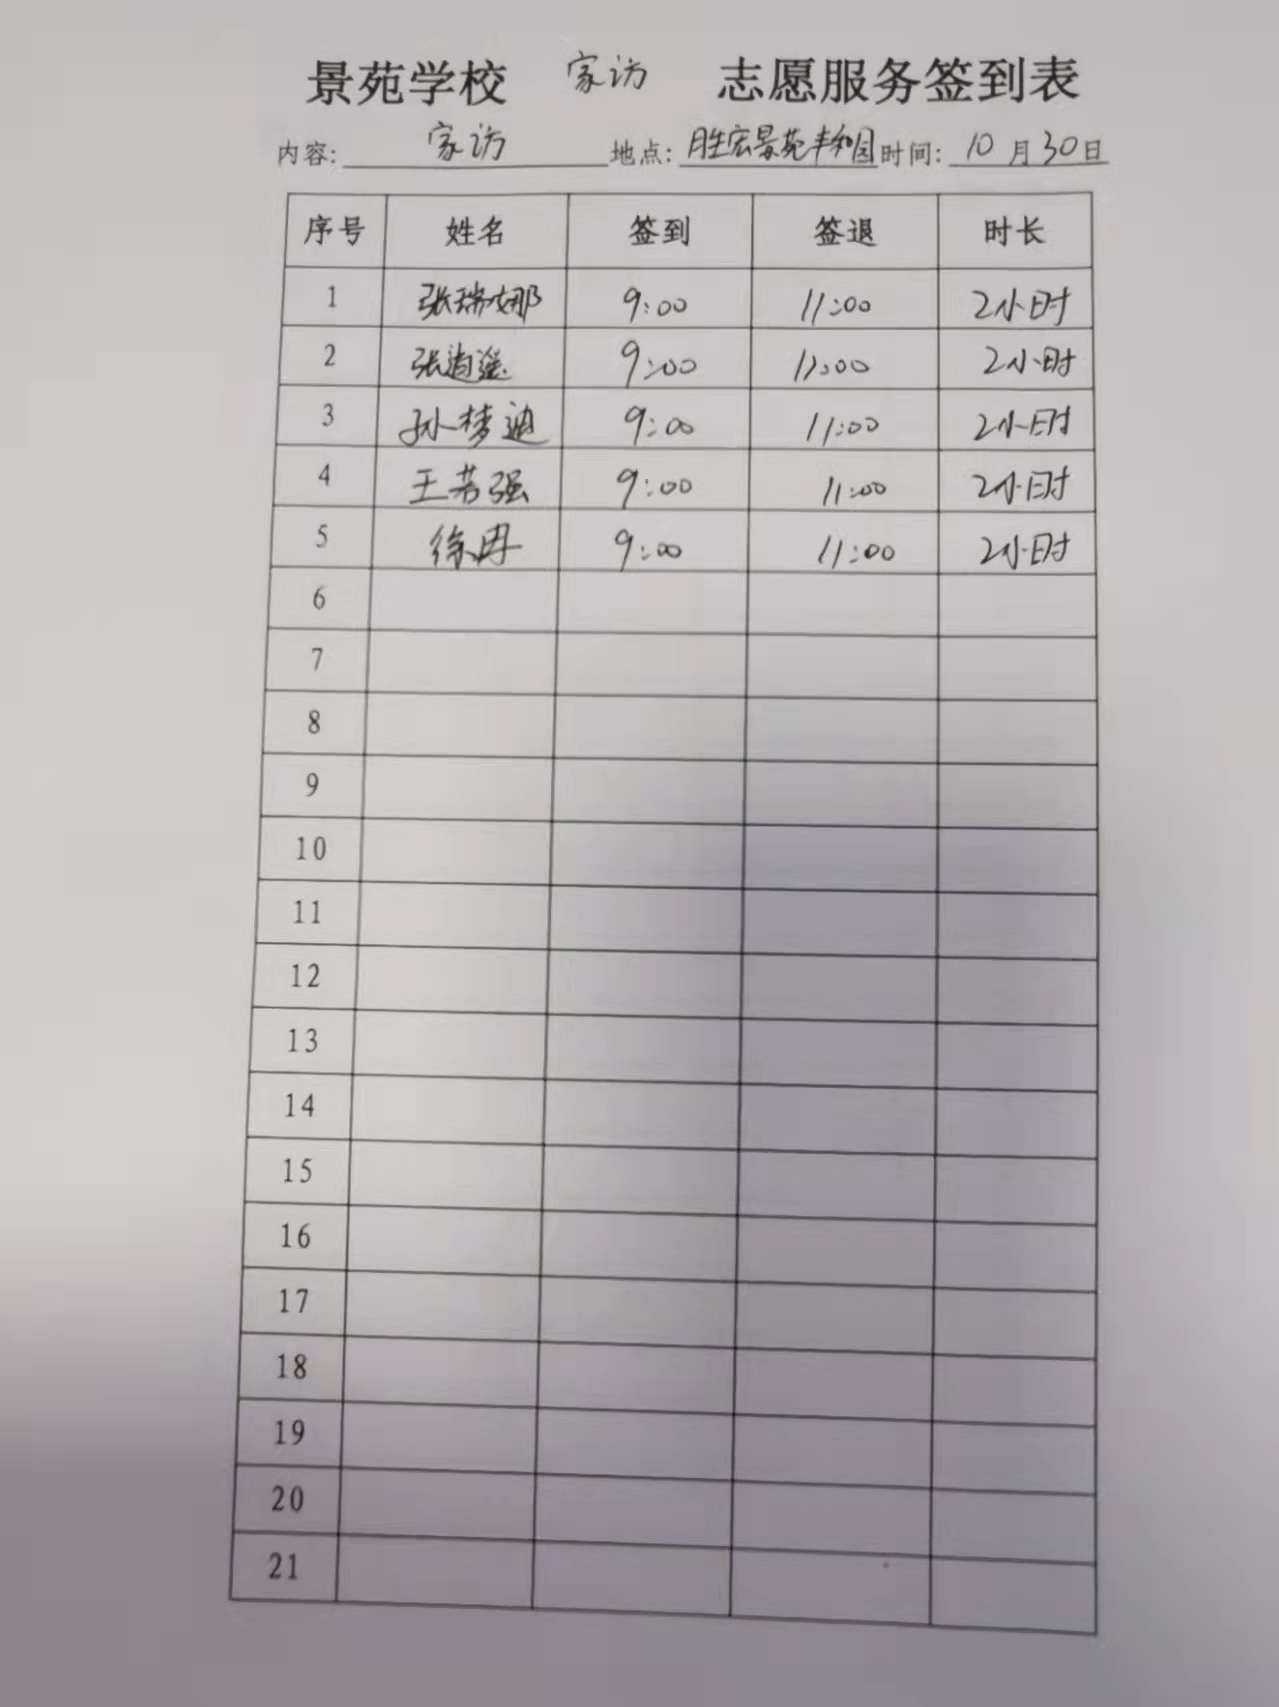 景苑学校 家访 志愿服务签到表
内容: 家访 地点: 胜宏景苑丰和园 时间: 10月30日
序号 姓名 签到 签退 时长
1 张瑞娜 9:00 11:00 2小时
2 张逍遥 9:00 11:00 2小时
3 孙梦迪 9:00 11:00 2小时
4 王若强 9:00 11:00 2小时
5 徐冉 9:00 11:00 2小时
6
7
8
9
10
11
12
13
14
15
16
17
18
19
20
21